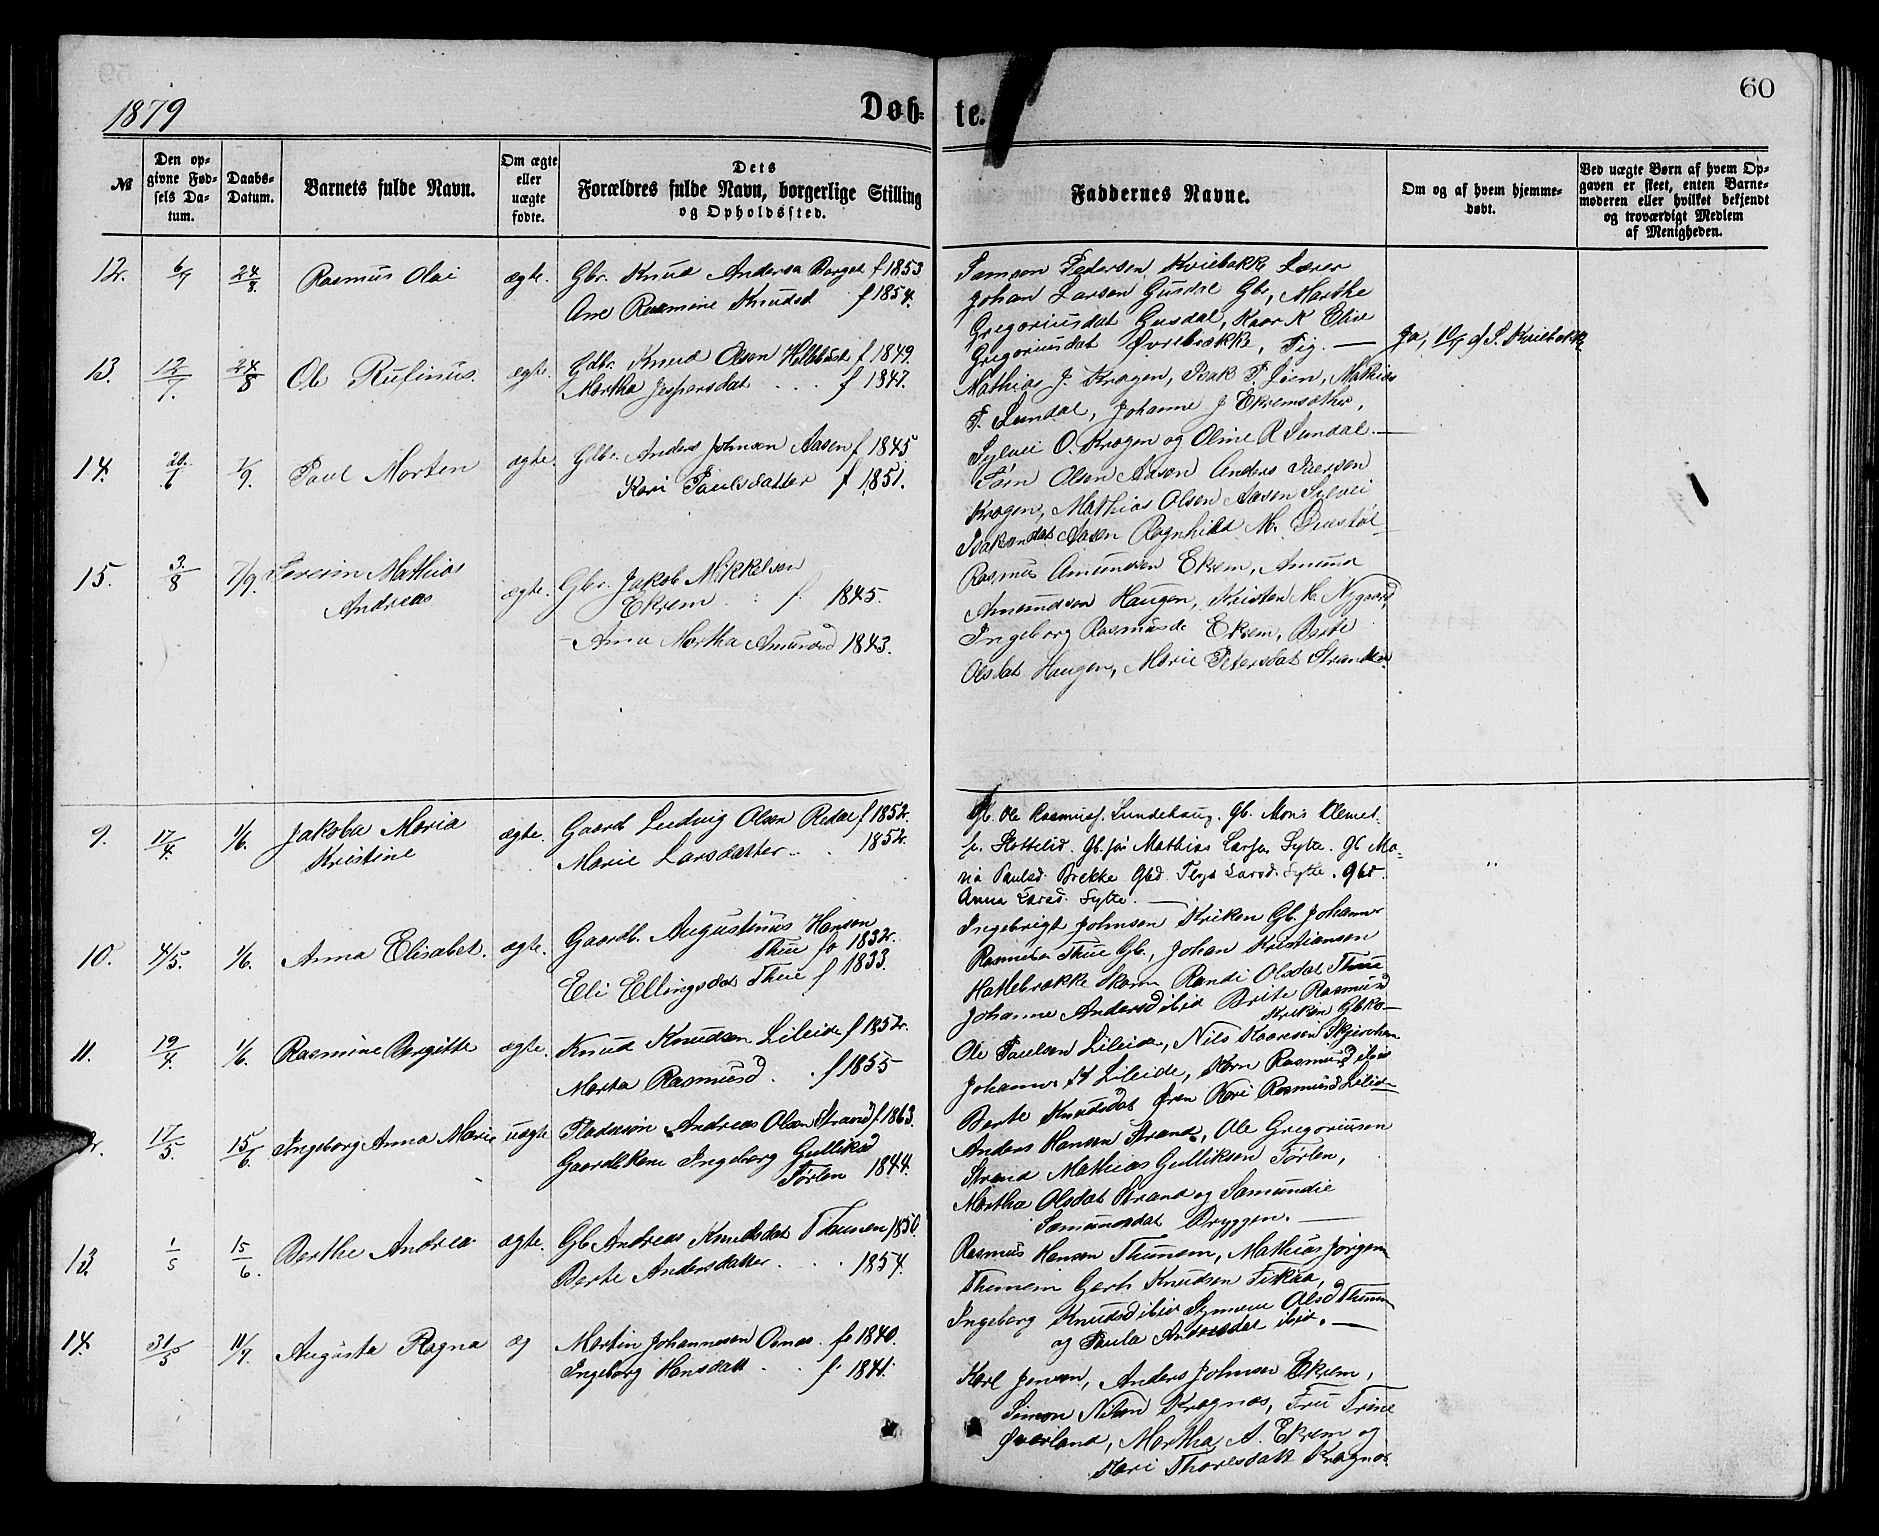 1879
Døb-
te.
60
№
Den op-
givne Fød-
sels Da-
tum.
Daabs-
Datum.
Barnets fulde Navn.
Om ægte
eller
uægte
fødte.
Dets
Forældres fulde Navn, borgerlige Stilling
og Opholdssted.
Faddernes Navne.
Om og af hvem hjemme-
døbt.
Ved uægte Børn af hvem Op-
gaven er skeet, enten Barne-
moderen eller hvilket bekjendt
og troværdigt Medlem
af Menigheden.
12. 6/7 24/8. Rasmus Olai ægte. Gbr. Knud Anders Berget f 1853
Ane Rasmine Knudsd f 1854.
Samson Pedersen Kviebakk Lærer
Johan Larsen Gusdal Gbr, Marthe
Gregoriusdat Gusdal, Kaar K Elise
Gregoriusdat Øvrebækk, Pig. —
Ja, 10/7 af S. Kviebakk
13. 12/7. 24/8 Ole Rufinus. ægte. Gdbr. Knud Olsen f 1849.
Martha Jespersdat . . . f 1847.
Mathias J. Kragen, Isak P. Øien, Mathias
P. Sundal, Johanne J Ekremsæther,
Sylvei O. Kragen og Oline R Sundal. —
14. 20/6 1/9. Paul Morten ægte. Gbr. Anders Johnsen Aasen f 1845
Kari Paulsdatter f 1851.
Jørn Olsen Aasen Anders Iversen
Kragen, Mathias Olsen Aasen Sylvei
Isaksdat Aasen Ragnhild M.
15. 3/8 7/9. Severin Mathias
Andreas
ægte. Gbr. Jakob Mikkelsen
Ekrem . . f. 1845.
Anna Martha Amundsd 1843.
Rasmus Amundsen Ekrem, Amund
Amundsen Haugen, Kristen M. Nygaard,
Ingeborg Rasmusd Ekrem, Berte
Olsdat Haugen, Marie Petersdat
9. 17/4. 1/6. Jakoba Maria
Kristine
ægte. Gaardb Ludvig Olsen Redal f 1852.
Marie Larsdatter . . 1852.
Gb. Ole Rasmuss. Lundehaug. Gb. Mons Klemet-
s. Slottelid. Gb.søn Mathias Larsen Sylte. gb Ma-
ria Paulsd. Brekke Gbd. Larsd. Sylte. gbd.
Anna Larsd. Sylte. —
10. 4/5. 1/6. Anna Elisabet. ægte. Gaardb. Augustinus Hansen
Thue fø 1832.
Eli Ellingsdat Thue f 1833.
Ingebrigt Johnsen Kriken Gb. Johannes
Rasmussen Thue Gb., Johan Kristiansen
Hatlebrække Skom Randi Olsdat Thue
Johanne Andersd ibid Brite Rasmusd
Kriken Gbko—
11. 19/4. 1/6. Rasmine Bergitte ægte. Knud Knudsen Lileide f 1852.
Marta Rasmusd . . f 1855
Ole Paulsen Lileide, Nils Kaaresen
Johannes K Lileide, Karn Rasmusd ibid
Berte Knudsdat Øren Kari Rasmusd Lileide
17/5. 15/6. Ingeborg Anna Marie uægte Pladesøn Andreas Olsen Strand f 1863.
Gaardekone Ingeborg Gulliksd
Førlen 1844.
Anders Hansen Strand, Ole Gregoriusen
Strand Mathias Gulliksen Førlen,
Martha Olsdat Strand og Samundie
Samunsdat Bryggen. —
13. 1/5 15/6. Berthe Andrea ægte. Gb Andreas Knudsdat Thunem 1850.
Berte Andersdatter . . . 1854.
Rasmus Hansen Thunem, Mathias Jørgen
Thunem Gerh Knudsen Tikaa,
Ingeborg Knudsd ibid Synneve Olsd Thunem
og Paula Andersdat ibid. —
14. 31/5 11/7. Augusta Ragna æg Martin Johannesen Osnes . fø 1840.
Ingeborg Hansdatt . . f. 1841.
Karl Jensen, Anders Johnsen Ekrem,
Simon Nilsen Kragnæs, Fru Trine
Øverland, Martha A. Ekrem og
Kari Thoresdatt Kragnæs